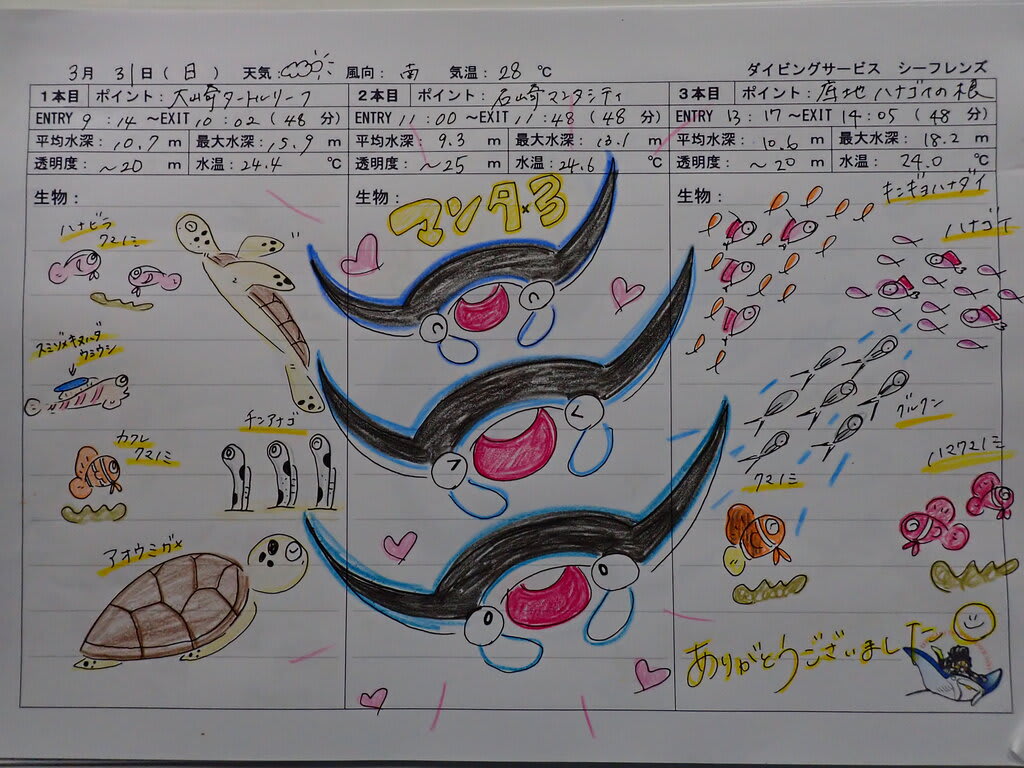 3月 31日(日) 天気: 風向: 南 気温: 28 ℃
ダイビングサービス シーフレンズ
1本目 ポイント: 大崎タートルリーフ
ENTRY 9:14 〜EXIT 10:02 (48 分)
平均水深: 10.7 m 最大水深: 15.9 m
透明度: 〜20 m 水温: 24.4 ℃
生物:
ハナビラ
クマノミ
スミゾメキヌハダ
ウミウシ
カクレ
クマノミ
チンアナゴ
アオウミガメ
2本目 ポイント: 石崎マンタシティ
ENTRY 11:00 〜EXIT 11:48 (48 分)
平均水深: 9.3 m 最大水深: 13.1 m
透明度: 〜25 m 水温: 24.6 ℃
生物:
マンタ×3
3本目 ポイント: 底地ハナゴイの根
ENTRY 13:17 〜EXIT 14:05 (48 分)
平均水深: 10.6 m 最大水深: 18.2 m
透明度: 〜20 m 水温: 24.0 ℃
生物:
キンギョハナダイ
ハナゴイ
グルクン
クマノミ
ハマクマノミ
ありがとうございました